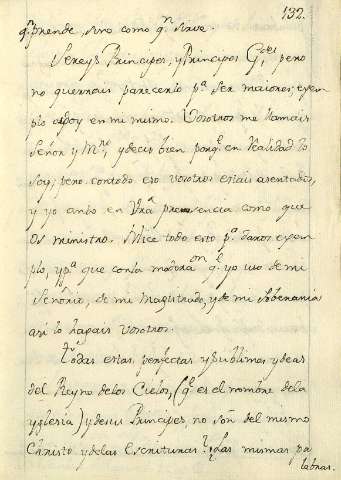 132.
qn prende, sino como qn sirve.
Sereys Principes, y Principes Gdes, pero
no querrais parecerlo pa ser maiores; exem
plo doy en mi mismo. Vosotros me llamais
Señor y Mro, y decis bien porqe en realidad lo
soy; pero con todo eso vosotros estais asentados,
y yo ando en Vra presencia como que
os ministro. Hice todo esto pa daros exem
plo, y pa que con la modraon qe yo uso de mi
Señorio, de mi Magistrado, y de mi Soberania
asi lo hagais vosotros.
Todas estas perfectas y sublimes ydeas
del Reyno de los Cielos, (qe es el nombre de la
yglesia) y de sus Principes, no son del mismo
Christo y de las Escrituras? Las mismas pa
labras.